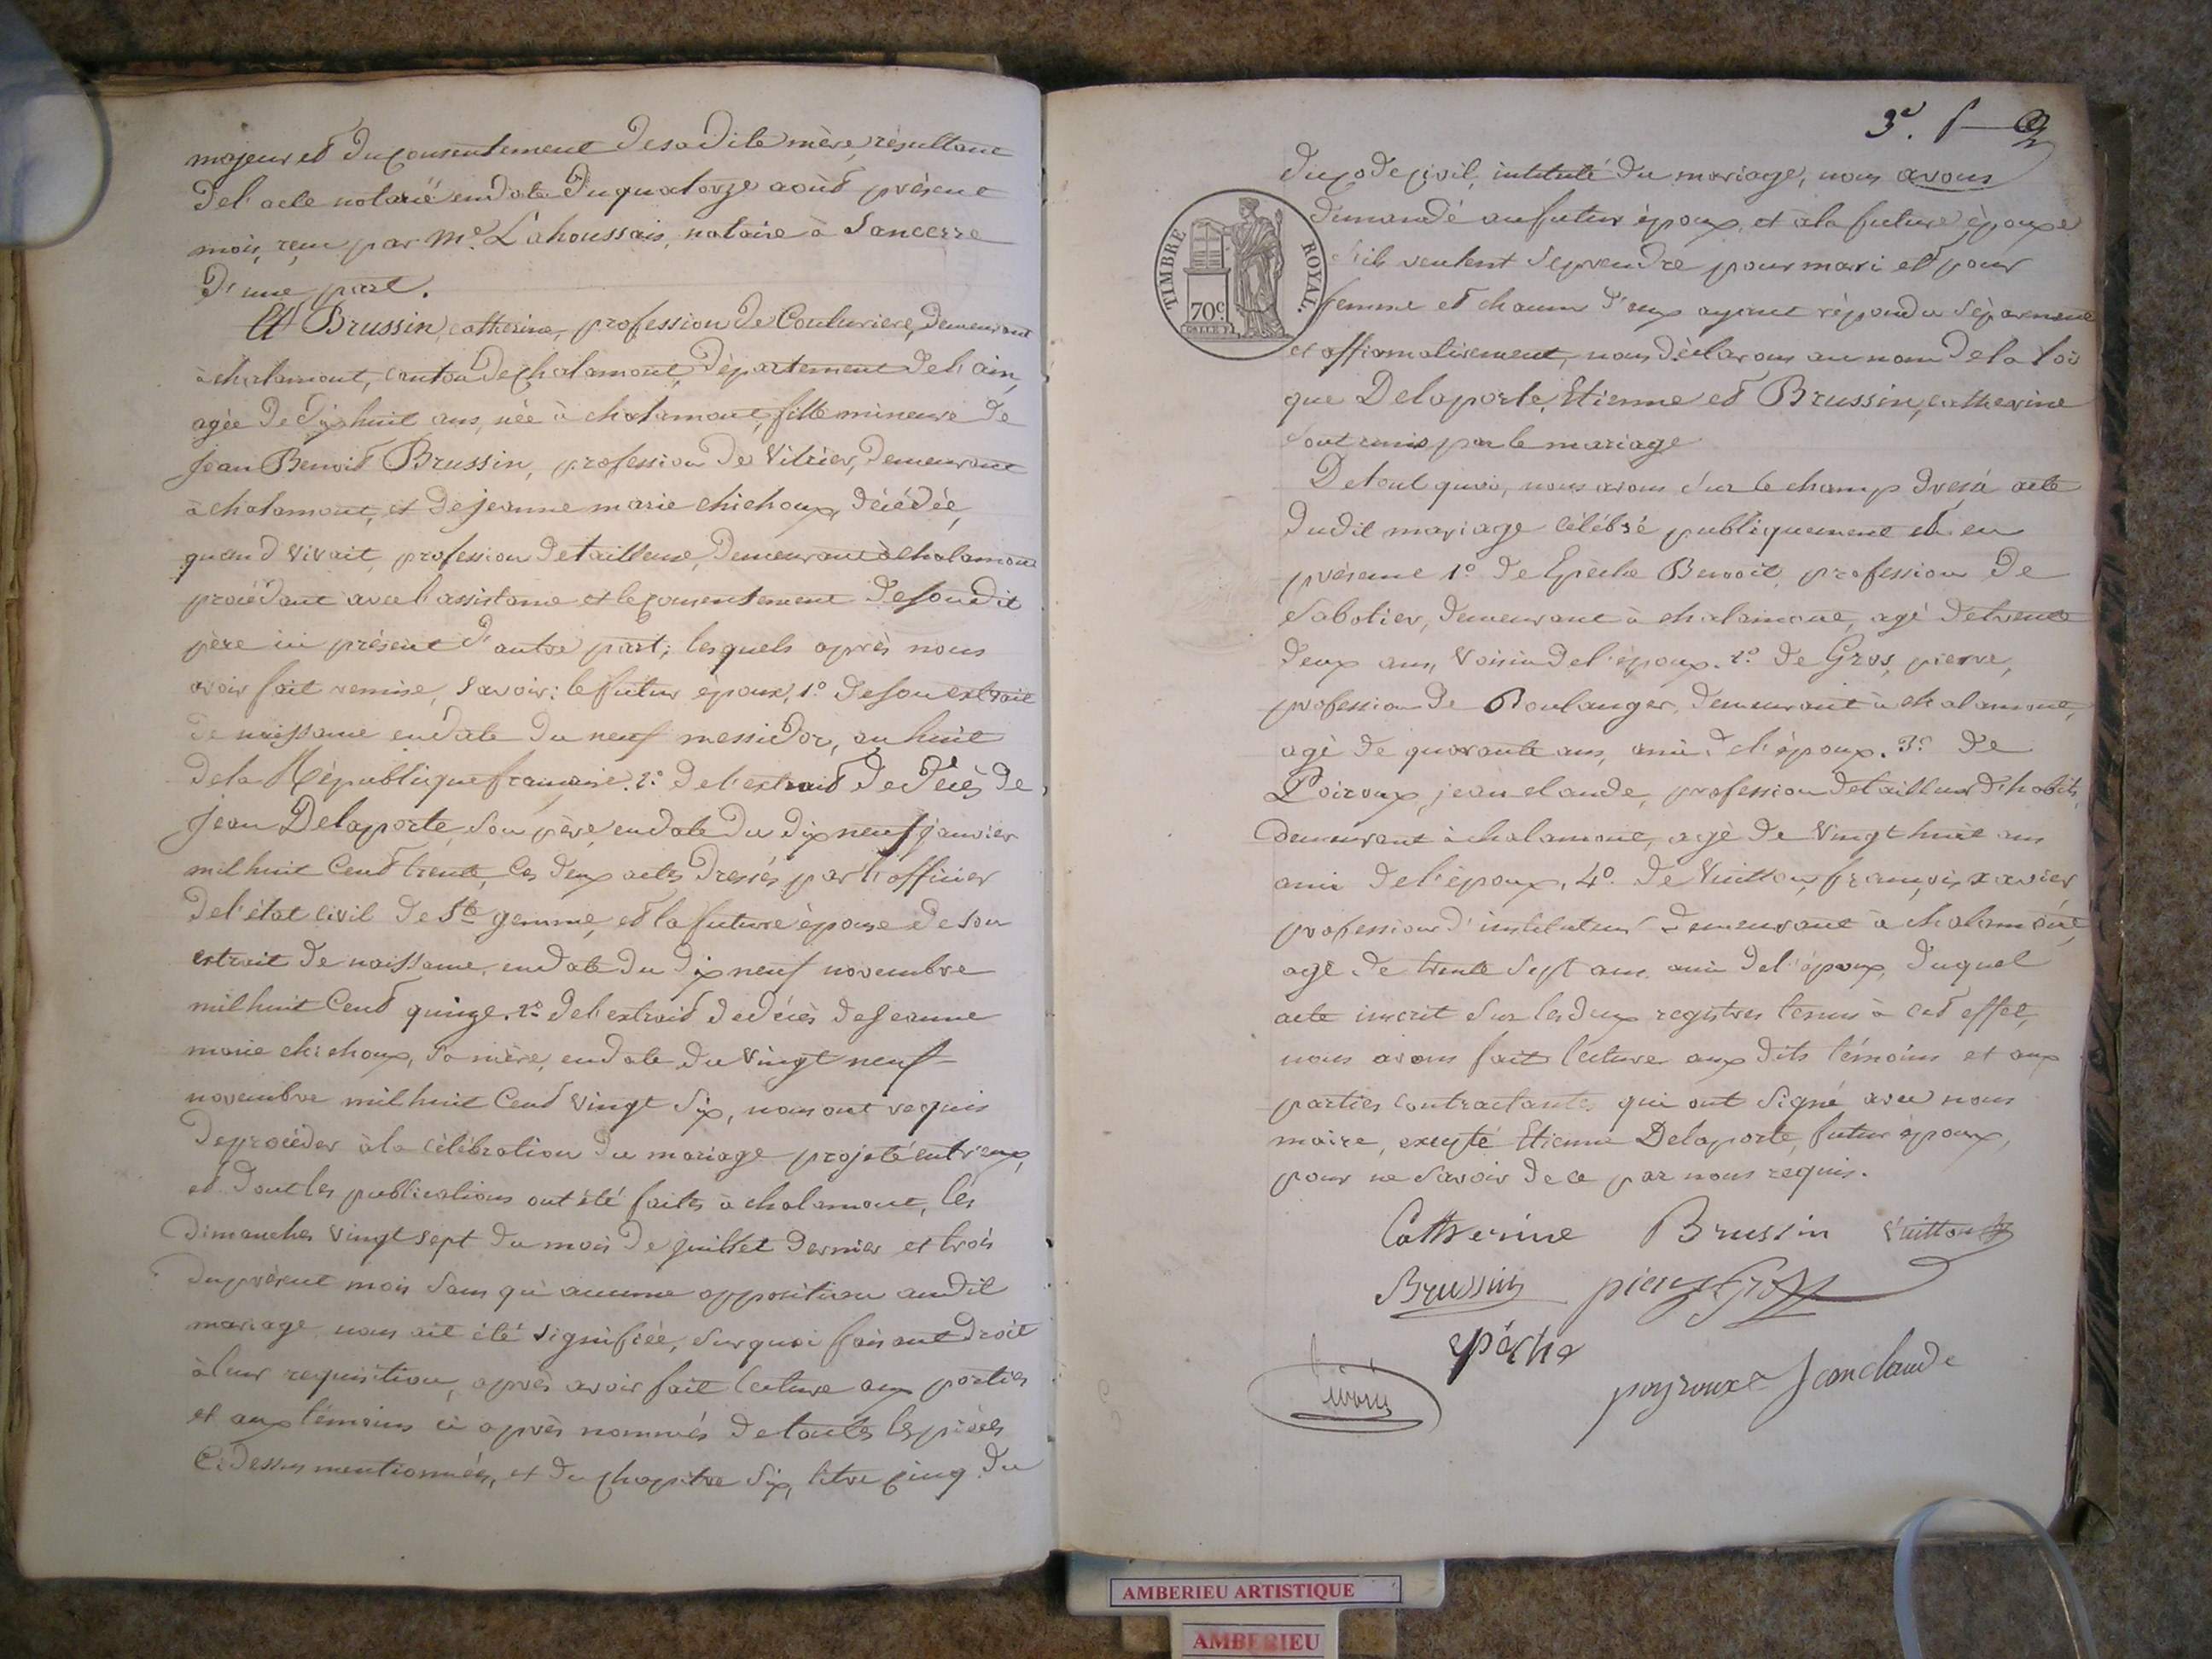 majeur et du consentement de sa dite mère, résultant
de l'acte notarié en date du quatorze août présent
mois, reçu par Me. Lahoussais, notaire à Sancerre
d'une part.
Et Brussin, catherine, profession de Couturiere, demeurant
à chalamont, canton de Chalamont, département de l'ain,
agée de dix huit ans, née à chalamont, fille mineure de
Jean Benoit Brussin, profession de Vitrier, demeurant
à chalamont, et de jeanne marie chichoux, décédée,
quand vivait, profession de tailleuse, demeurant à chalamont
procédant avec l'assistance et le consentement de son dit
père ici présent d'autre part; lesquels après nous
avoir fait remise, savoir: le futur époux, 1o de son extrait
de naissance en date du neuf messidor, an huit
de la République francaise. 2o de l'extrait de décès de
Jean Delaporte, son père, en date du dix neuf janvier
mil huit Cent trente, ces deux actes dressés par l'officier
de l'état civil de Ste gemme, et la future épouse de son
extrait de naissance, en date du dix neuf novembre
mil huit Cent quinze. 2o de l'extrait de décès de Jeanne
marie chichoux, sa mère, en date du vingt neuf
novembre mil huit Cent vingt six, nous ont requis
de procéder à la célébration du mariage projeté entr'eux,
et dont les publications ont été faites à chalamont, les
dimanches vingt sept du mois de juillet dernier et trois
du présent mois sans qu'aucune opposition audit
mariage nous ait été signifiée, surquoi faisant droit
à leur requisition, après avoir fait lecture aux parties
et aux témoins ci après nommés de toutes les pièces
Ci dessus mentionnées, et du chapitre six, titre cinq du
3e.
du code civil, intitulé du mariage, nous avons
demandé au futur époux, et à la future épouse
s'ils veulent se prendre pour mari et pour
femme et chacun d'eux ayant répondu séparement
et affirmativement, nous déclarons au nom de la loi
que Delaporte, Etienne et Brussin, catherine
sont unis par le mariage
TIMBRE ROYAL.
70c
De tout quoi, nous avons sur le champ dressé acte
dudit mariage célébré publiquement et en
présence 1o de Epeche Benoit, profession de
Sabotier, demeurant à chalamont, agé de trente
deux ans, voisin de l'époux. 2o de Gros, pierre,
profession de Boulanger, demeurant à chalamont,
agé de quarante ans, ami de l'époux. 3o de
Poiroux, jean claude, profession de tailleur d'habits,
demeurant à chalamont, agé de vingt huit ans
ami de l'époux, 4o de Vuitton, françois xavier,
profession d'instituteur demeurant à chalamont,
agé de trente sept ans, ami de l'époux, duquel
acte inscrit sur les deux registres tenus à cet effet,
nous avons fait lecture aux dits témoins et aux
parties contractantes qui ont signé avec nous
maire, excepté Etienne Delaporte, futur époux,
pour ne savoir de ce par nous requis.
Catherine Brussin Vuitton
Brussin pierre Gros
epéche
poyroux Jean claude
AMBERIEU ARTISTIQUE
AMBERIEU